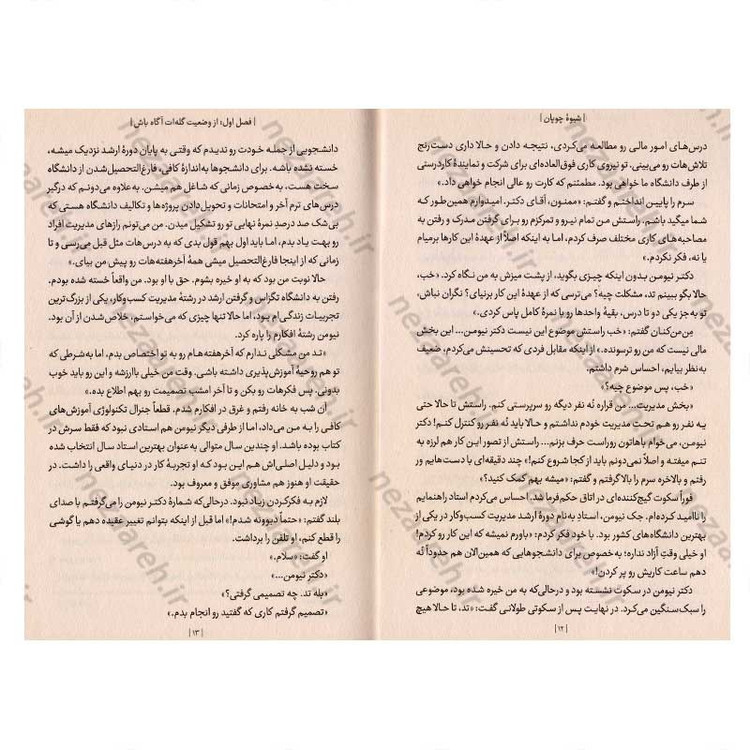 | شیوهٔ چوپان |
درس‌های امور مالی رو مطالعه می‌کردی، نتیجه دادن و حالا داری دست‌رنج
تلاش‌هات رو می‌بینی. تو نیروی کاری فوق‌العاده‌ای برای شرکت و نمایندهٔ کاردرستی
از طرف دانشگاه ما خواهی بود. مطمئنم که کارت رو عالی انجام خواهی داد.»
سرم را پایین انداختم و گفتم: «ممنون، آقای دکتر. امیدوارم همین‌طور که
شما میگید باشم. راستش من تمام نیرو و تمرکزم رو برای گرفتن مدرک و رفتن به
مصاحبه‌های کاری مختلف صرف کردم، اما به اینکه اصلاً از عهدهٔ این کارها برمیام
یا نه، فکر نکردم.»
دکتر نیومن بدون اینکه چیزی بگوید، از پشت میزش به من نگاه کرد. «خب،
حالا بگو ببینم تد، مشکلت چیه؟ می‌ترسی که از عهدهٔ این کار برنیای؟ نگران نباش،
تو به جز یکی دو تا درس، بقیهٔ واحدها رو با نمرهٔ کامل پاس کردی.»
مِن‌مِن‌کنان گفتم: «خب راستش موضوع این نیست دکتر نیومن... این بخش
مالی نیست که من رو ترسونده.» از اینکه مقابل فردی که تحسینش می‌کردم، ضعیف
به‌نظر بیایم، احساس شرم داشتم.
«خب، پس موضوع چیه؟»
«بخش مدیریت... من قراره نُه نفر دیگه رو سرپرستی کنم. راستش تا حالا حتی
یه نفر رو هم تحت مدیریت خودم نداشتم و حالا باید نُه نفر رو کنترل کنم! دکتر
نیومن، می‌خوام باهاتون روراست حرف بزنم... راستش از تصور این کار هم لرزه به
تنم میفته و اصلاً نمی‌دونم باید از کجا شروع کنم!» چند دقیقه‌ای با دست‌هایم ور
رفتم و بالاخره سرم را بالا گرفتم و گفتم: «میشه بهم کمک کنید؟»
فوراً سکوت گیج‌کننده‌ای در اتاق حکم‌فرما شد. احساس می‌کردم استاد راهنمایم
را ناامید کرده‌ام. جک نیومن، استادِ به‌نام دورهٔ ارشد مدیریت کسب‌وکار در یکی از
بهترین دانشگاه‌های کشور بود. با خود فکر کردم: «باورم نمیشه که این کار رو کردم!
او خیلی وقتِ آزاد نداره؛ به‌خصوص برای دانشجوهایی که همین‌الان هم حدوداً نُه
دهم ساعت کاریش رو پر کردن!»
دکتر نیومن در سکوت نشسته بود و درحالی‌که به من خیره شده بود، موضوعی
را سبک‌سنگین می‌کرد. در نهایت پس از سکوتی طولانی گفت: «تد، تا حالا هیچ
| ۱۲ |
| فصل اول: از وضعیت گله‌ات آگاه باش |
دانشجویی از جمله خودت رو ندیدم که وقتی به پایان دورهٔ ارشد نزدیک میشه،
خسته نشده باشه. برای دانشجوها به‌اندازهٔ کافی، فارغ‌التحصیل‌شدن از دانشگاه
سخت هست، به‌خصوص زمانی که شاغل هم میشن. به علاوه می‌دونم که درگیر
درس‌های ترم آخر و امتحانات و تحویل‌دادن پروژه‌ها و تکالیف دانشگاه هستی که
بی‌شک صد درصدِ نمرهٔ نهایی تو رو تشکیل میدن. من می‌تونم رازهای مدیریت افراد
رو بهت یاد بدم، اما باید اول بهم قول بدی که به درس‌هات مثل قبل می‌رسی و تا
زمانی که از اینجا فارغ‌التحصیل میشی همهٔ آخرهفته‌هات رو پیش من بیای.»
حالا نوبت من بود که به او خیره بشوم. حق با او بود. من واقعاً خسته شده بودم.
رفتن به دانشگاه تگزاس و گرفتن ارشد در رشتهٔ مدیریت کسب‌وکار، یکی از بزرگ‌ترین
تجربیات زندگی‌ام بود، اما حالا تنها چیزی که می‌خواستم، خلاص‌شدن از آن بود.
نیومن رشتهٔ افکارم را پاره کرد.
«تد من مشکلی ندارم که آخرهفته‌هام رو به تو اختصاص بدم، اما به‌شرطی که
تو هم روحیهٔ آموزش‌پذیری داشته باشی. وقت من خیلی باارزشه و این رو باید خوب
بدونی. پس فکرهات رو بکن و تا آخر امشب تصمیمت رو بهم اطلاع بده.»
آن شب به خانه رفتم و غرق در افکارم شدم. قطعاً جنرال تکنولوژی آموزش‌های
کافی را به من می‌داد، اما از طرفی دیگر نیومن هم استادی نبود که فقط سرش در
کتاب بوده باشد. او چندین سال متوالی به‌عنوان بهترین استاد سال انتخاب شده
بود و دلیل اصلی‌اش هم این بود که او تجربهٔ کار در دنیای واقعی را داشت. در
حقیقت او هنوز هم مشاوری موفق و معروف بود.
لازم به فکرکردن زیاد نبود. درحالی‌که شمارهٔ دکتر نیومن را می‌گرفتم با صدای
بلند گفتم: «حتماً دیوونه شدم!» اما قبل از اینکه بتوانم تغییر عقیده دهم یا گوشی
را قطع کنم، او تلفن را برداشت.
او گفت: «سلام.»
«دکتر نیومن...»
«بله تد. چه تصمیمی گرفتی؟»
«تصمیم گرفتم کاری که گفتید رو انجام بدم.»
| ۱۳ |
nezareh.ir